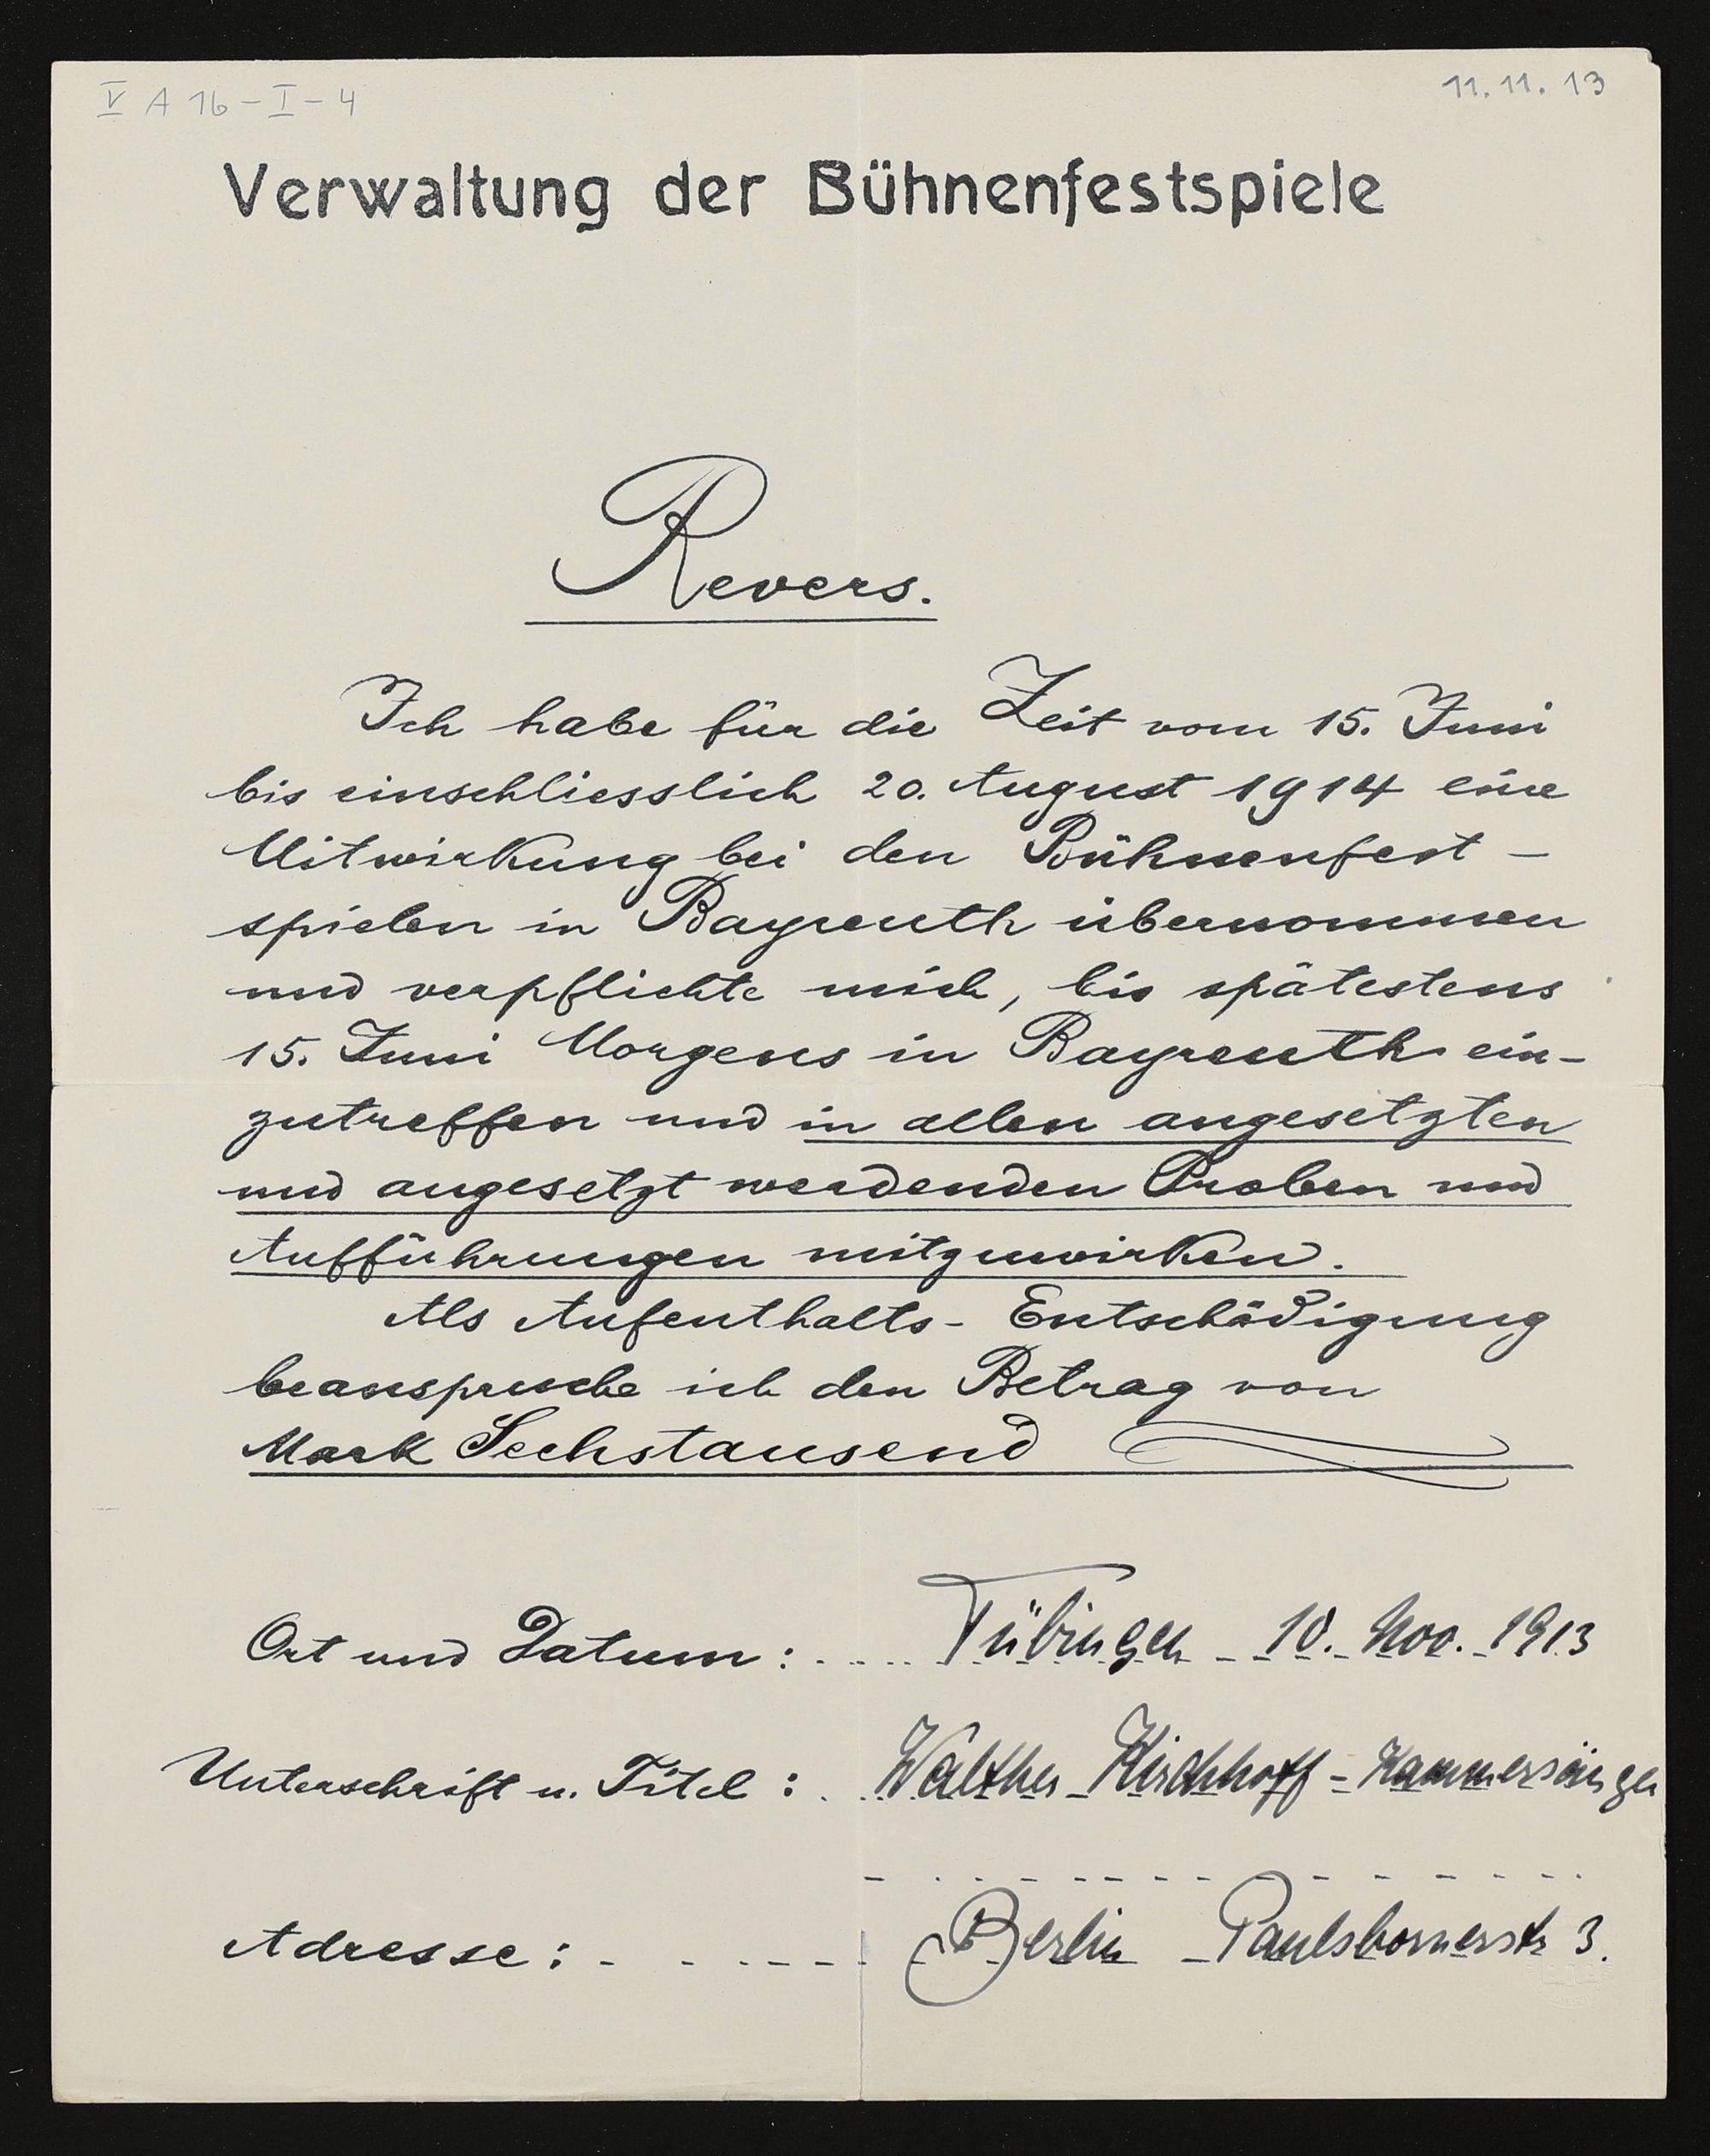 V A 16 – I – 4
11. 11. 13
Verwaltung der Bühnenfestspiele
Revers.
Ich habe für die Zeit vom 15. Juni
bis einschliesslich 20. August 1914 eine
Mitwirkung bei den Bühnenfest –
spielen in Bayreuth übernommen
und verpflichte mich, bis spätestens
15. Juni Morgens in Bayreuth ein-
zutreffen und in allen angesetzten
und angesetzt werdenden Proben und
Aufführungen mitzuwirken.
Als Aufenthalts- Entschädigung
beanspruche ich den Betrag von
Mark Sechstausend
Ort und Datum: Tübingen 10. Nov. 1913
Unterschrift u. Titel: Walther Kirchhoff - Kammersänger
Adresse: Berlin Paulsbornerstr 3.